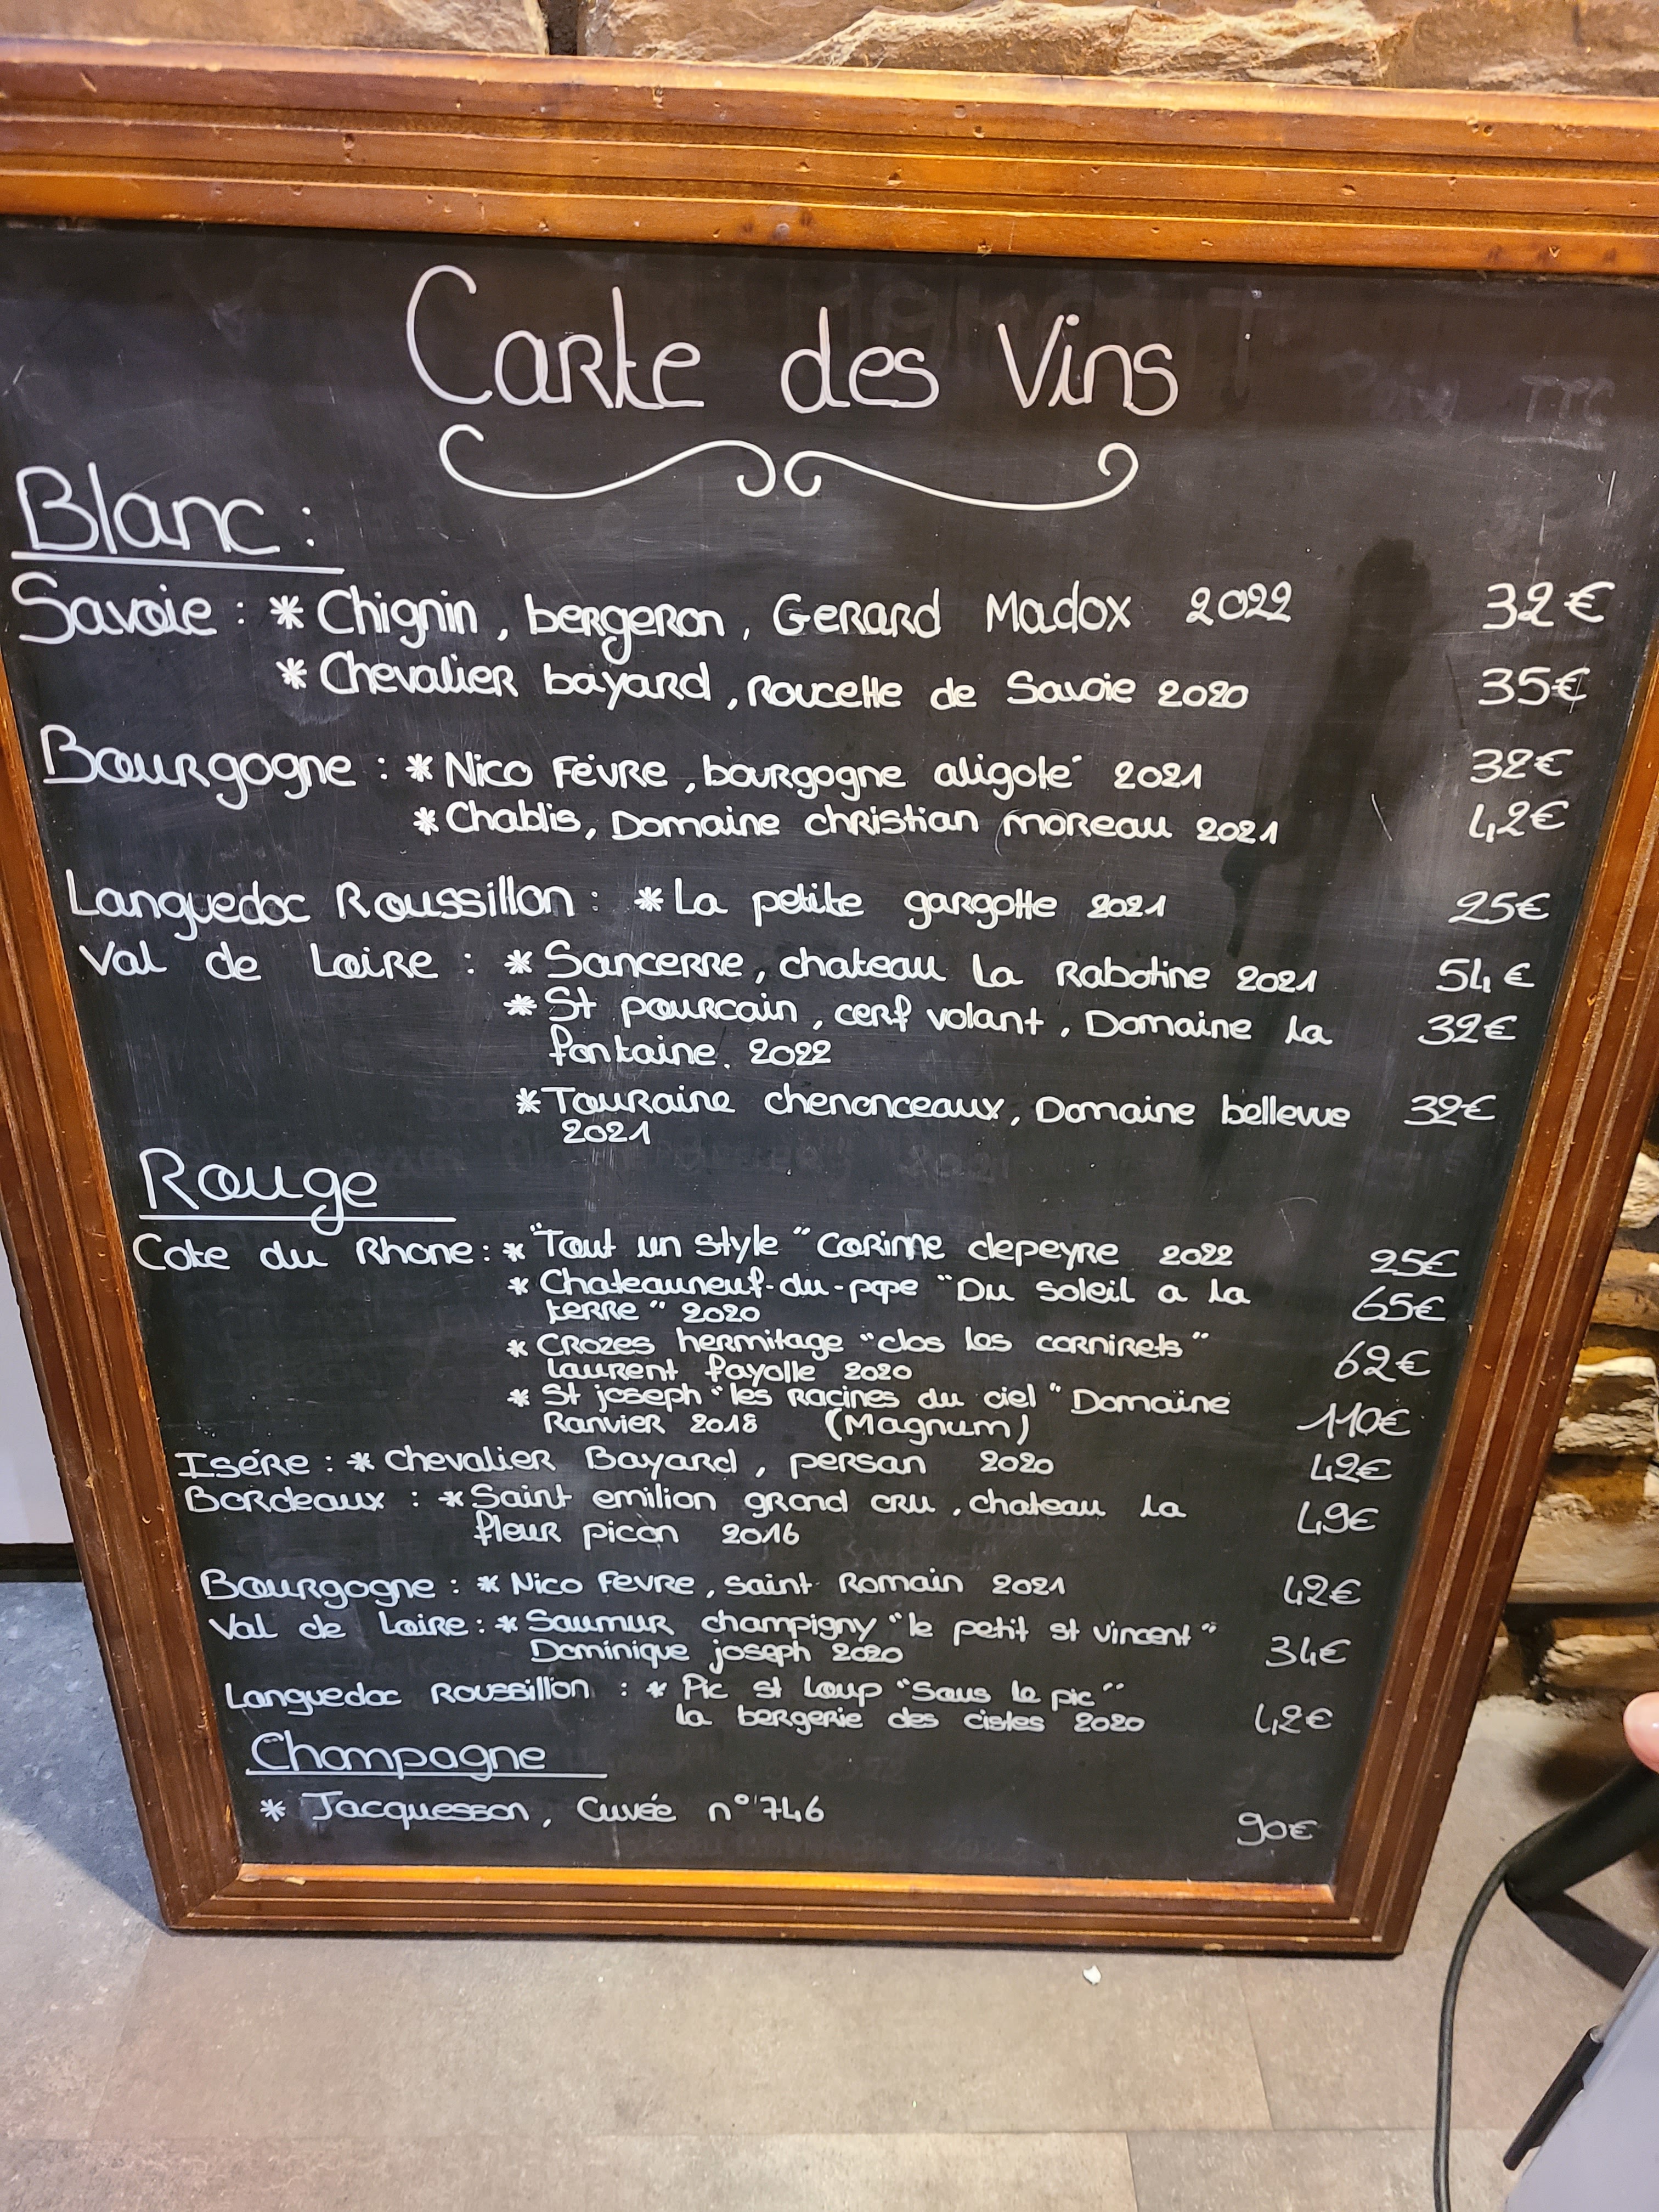 Carte des Vins
Blanc :
Savoie : * Chignin, bergeron, Gerard Madox 2022 32€
* Chevalier bayard, Roucette de Savoie 2020 35€
Bourgogne : * Nico Fèvre, bourgogne aligoté 2021 32€
* Chablis, Domaine christian moreau 2021 42€
Languedoc Roussillon : * La petite gargotte 2021 25€
Val de Loire : * Sancerre, chateau la Rabotine 2021 54€
* St pourcain, cerf volant, Domaine la 32€
fontaine. 2022
* Touraine chenonceaux, Domaine bellevue 32€
2021
Rouge
Cote du Rhone : * "Tout un style" Corinne depeyre 2022 25€
* Chateauneuf-du-pape "Du soleil a la
terre" 2020 65€
* Crozes hermitage "clos les cornirets"
laurent fayolle 2020 62€
* St joseph "les Racines du ciel" Domaine
Ranvier 2018 (Magnum) 110€
Isére : * Chevalier Bayard, persan 2020 42€
Bordeaux : * Saint emilion grand cru, chateau la
fleur picon 2016 49€
Bourgogne : * Nico Fevre, saint Romain 2021 42€
Val de Loire : * Saumur champigny "le petit st vincent"
Dominique joseph 2020 34€
Languedoc Roussillon : * Pic st Loup "Sous le pic"
la bergerie des cistes 2020 42€
Champagne
* Jacquesson, Cuvée n°746 90€